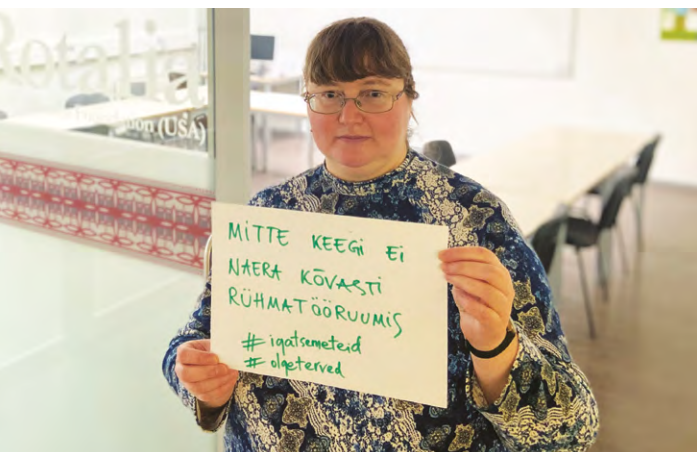 Rotalia
(USA)
MITTE KEEGI EI
NAERA KÕVASTI
RÜHMATÖÖRUUMIS
#igatsemeteid
#olgeterved